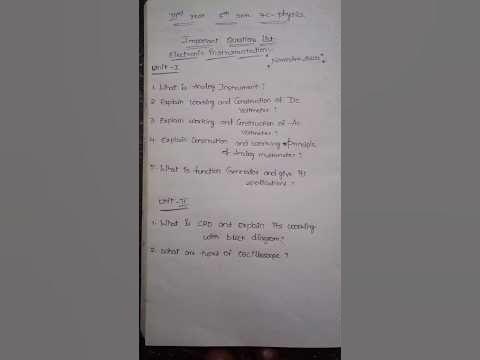 IIIrd year 5th sem 7C-physics.
Important Questions List
Electronic Instrumentation:-
Unit-I
1. What is Analog Instrument?
2. Explain working and Construction of Dc Voltmeter?
3. Explain working and Construction of Ac Voltmeter?
4. Explain Construction and working Principle
of Analog multimeter?
5. What is function Generator and give its
applications?
Unit-II
1. What is CRO and Explain its working
with block diagram?
2. What are types of oscilloscope?